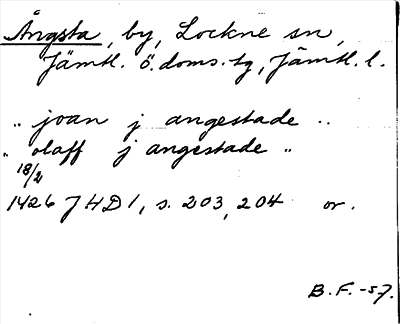 Ångsta, by, Lockne sn,
Jämtl. ö. doms. tg, Jämtl. l.
„ joan j angestade ..
„ olaff j angestade „
18/2
1426 JHD1, s. 203, 204 or.
B.F.-57.